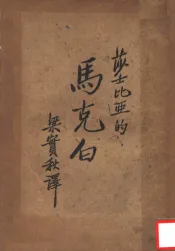 莎士比亞的
馬克白
梁實秋譯